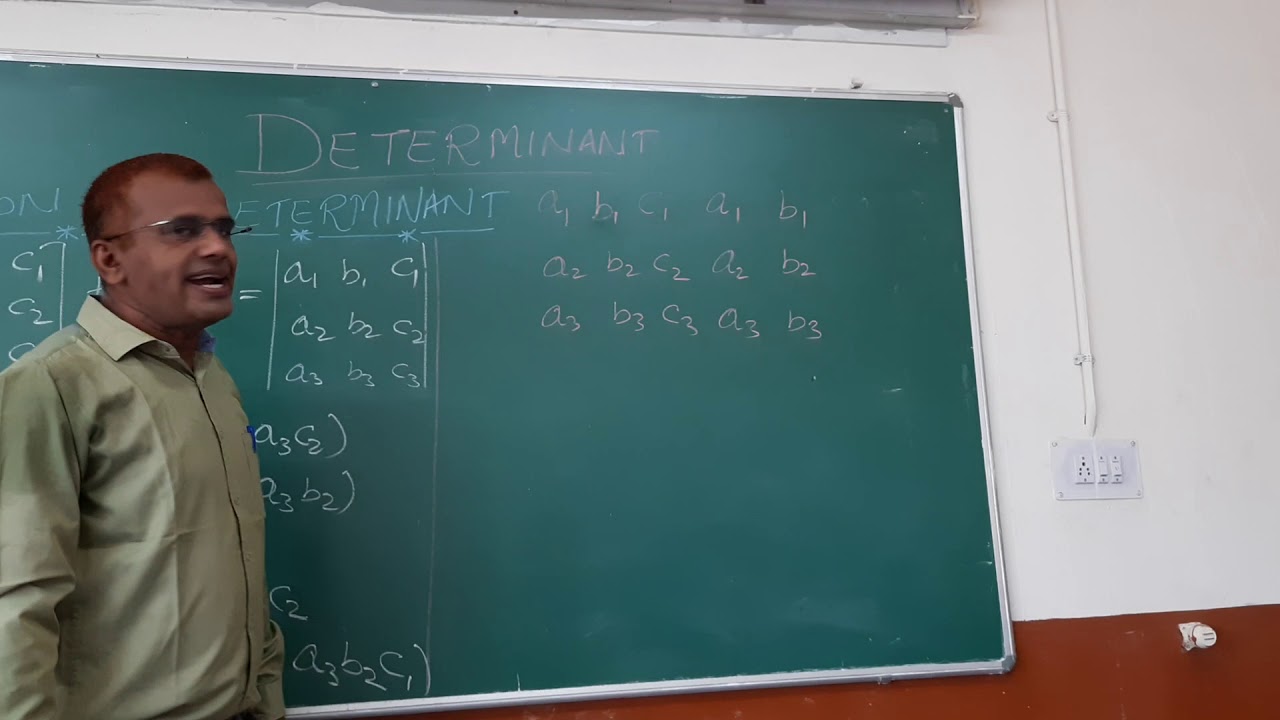 DETERMINANT
ON ETERMINANT
c₁ = a₁ b₁ c₁
c₂ a₂ b₂ c₂
a₃ b₃ c₃
a₃c₂)
a₃b₂)
c₂
a₃b₂c₁)
a₁ b₁ c₁ a₁ b₁
a₂ b₂ c₂ a₂ b₂
a₃ b₃ c₃ a₃ b₃